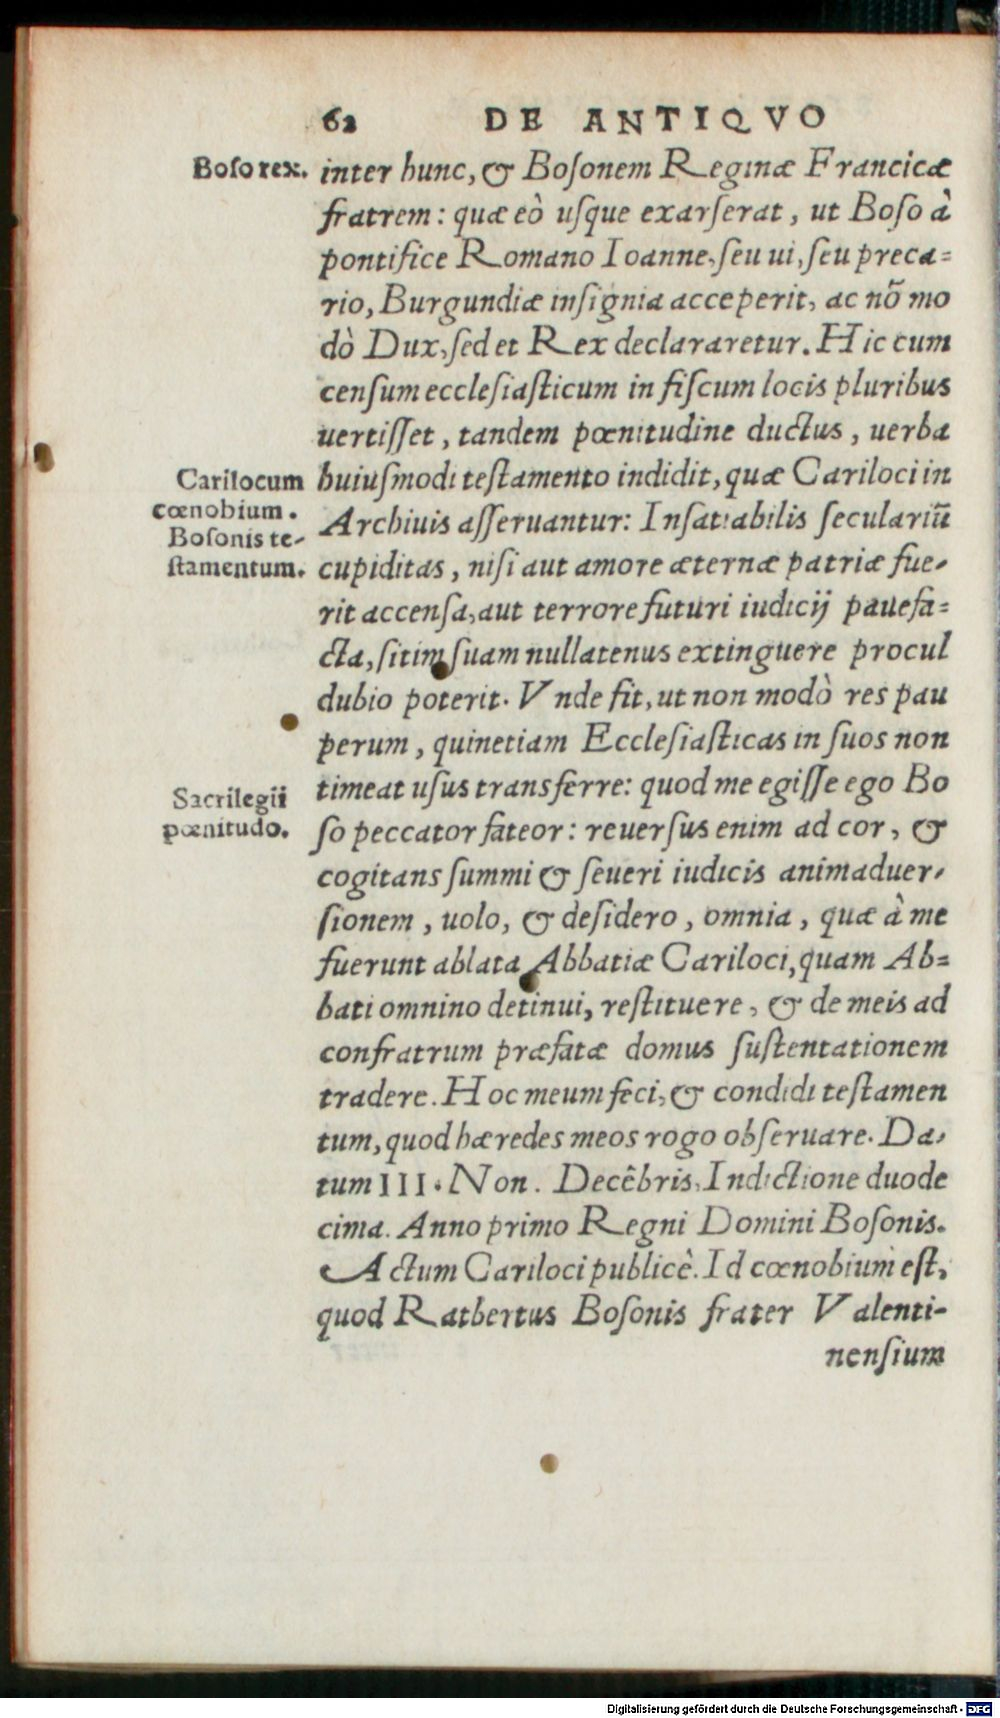 62 DE ANTIQVO
Boso rex.
inter hunc, & Bosonem Reginæ Francicæ
fratrem: quæ eò usque exarserat, ut Boso à
pontifice Romano Ioanne, seu ui, seu preca-
rio, Burgundiæ insignia acceperit, ac nõ mo
dò Dux, sed et Rex declararetur. Hic cum
censum ecclesiasticum in fiscum locis pluribus
uertisset, tandem pœnitudine ductus, uerba
Carilocum
cœnobium.
Bosonis te-
stamentum.
huiusmodi testamento indidit, quæ Cariloci in
Archiuis asseruantur: Insatiabilis seculariũ
cupiditas, nisi aut amore æternæ patriæ fue-
rit accensa, aut terrore futuri iudicij pauefa-
cta, sitim suam nullatenus extinguere procul
dubio poterit. Vnde fit, ut non modò res pau
perum, quinetiam Ecclesiasticas in suos non
Sacrilegii
pœnitudo.
timeat usus transferre: quod me egisse ego Bo
so peccator fateor: reuersus enim ad cor, &
cogitans summi & seueri iudicis animaduer-
sionem, uolo, & desidero, omnia, quæ à me
fuerunt ablata Abbatiæ Cariloci, quam Ab-
bati omnino detinui, restituere, & de meis ad
confratrum præfatæ domus sustentationem
tradere. Hoc meum feci, & condidi testamen
tum, quod hæredes meos rogo obseruare. Da-
tum III. Non. Decẽbris, Indictione duode
cima. Anno primo Regni Domini Bosonis.
Actum Cariloci publicè. Id cœnobium est,
quod Ratbertus Bosonis frater Valenti-
nensium
Digitalisierung gefördert durch die Deutsche Forschungsgemeinschaft - DFG